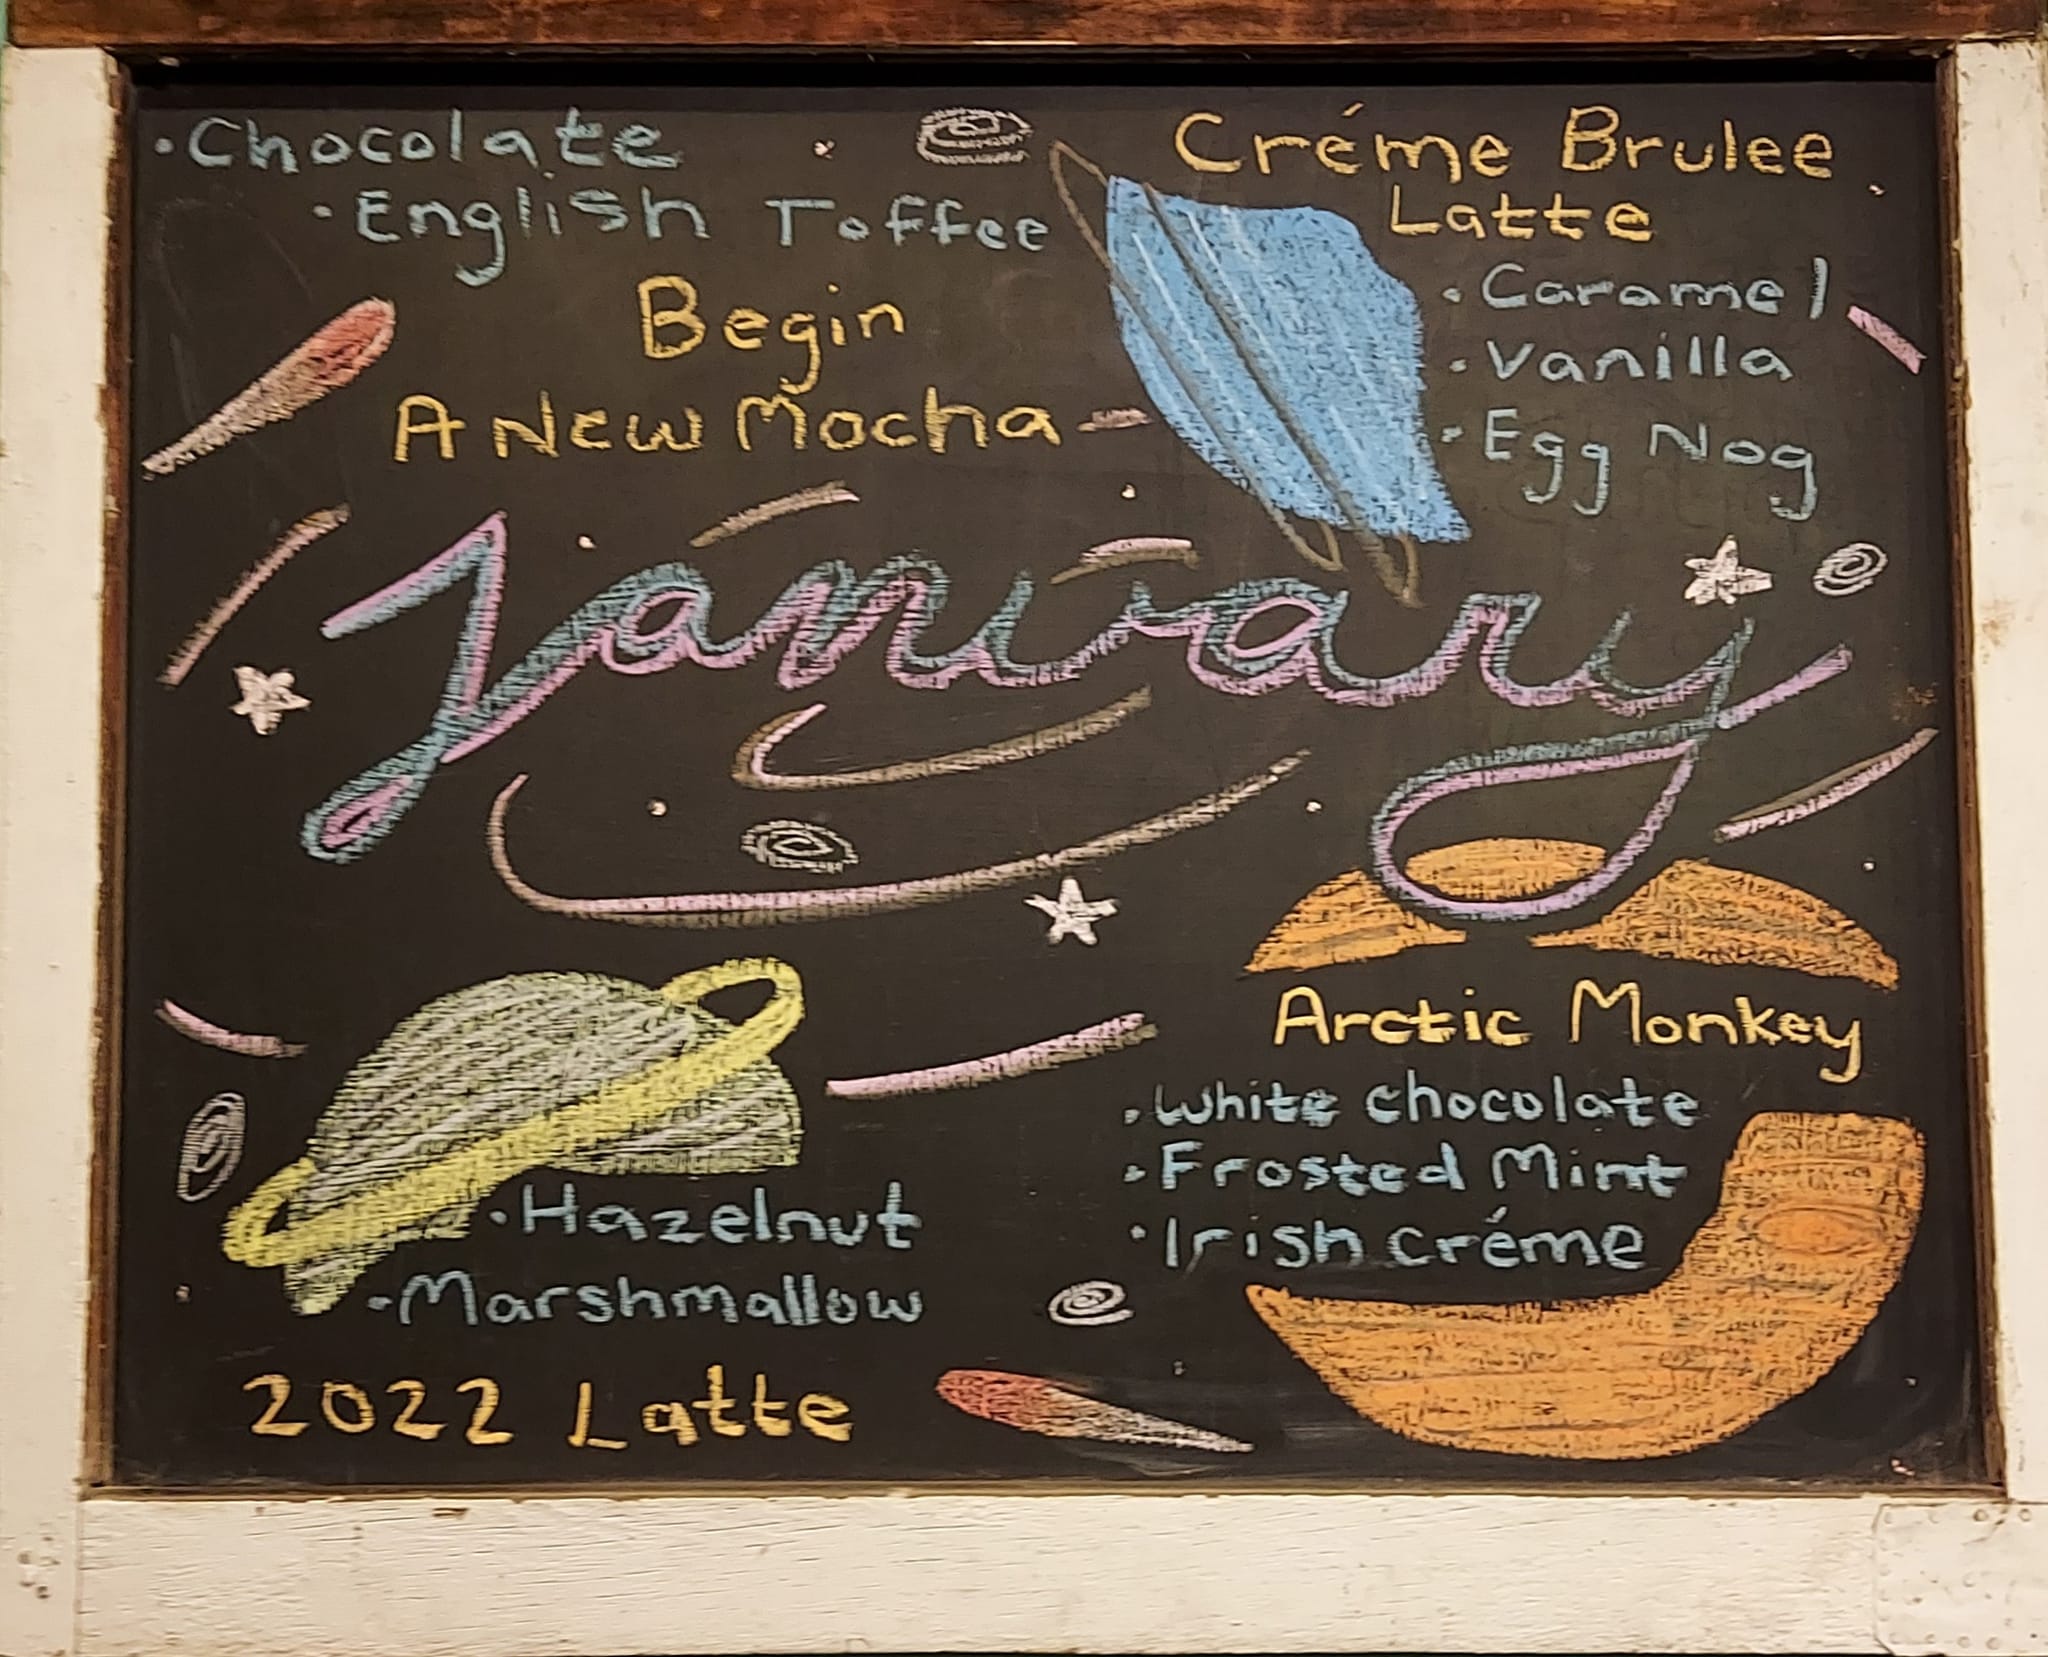 • Chocolate
• English Toffee
Begin
A New Mocha
Créme Brulee
Latte
• Caramel
• Vanilla
• Egg Nog
January
• Hazelnut
• Marshmallow
2022 Latte
Arctic Monkey
• White chocolate
• Frosted Mint
• Irish créme